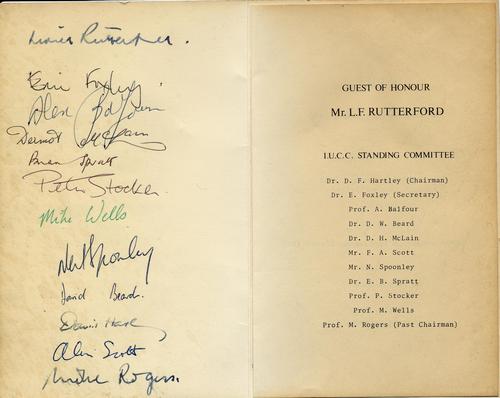 Rutterford.
Eric Foxley
Dermot McLain
Brian Spratt
Peter Stocker
Mike Wells
Neil Spoonley
David Beard.
David Hartley
Alan Scott
Mike Rogers.
GUEST OF HONOUR
Mr. L.F. RUTTERFORD
I.U.C.C. STANDING COMMITTEE
Dr. D. F. Hartley (Chairman)
Dr. E. Foxley (Secretary)
Prof. A. Balfour
Dr. D. W. Beard
Dr. D. H. McLain
Mr. F. A. Scott
Mr. N. Spoonley
Dr. E. B. Spratt
Prof. P. Stocker
Prof. M. Wells
Prof. M. Rogers (Past Chairman)